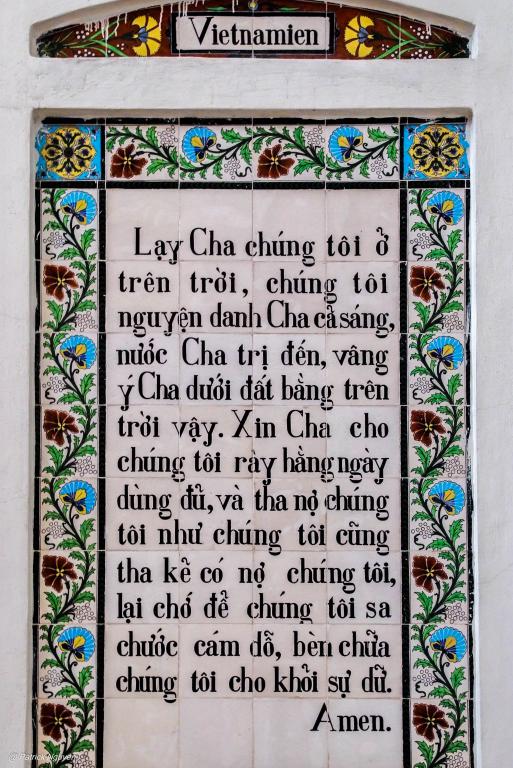 Vietnamien
Lạy Cha chúng tôi ở
trên trời, chúng tôi
nguyện danh Cha cả sáng,
nước Cha trị đến, vâng
ý Cha dưới đất bằng trên
trời vậy. Xin Cha cho
chúng tôi rày hằng ngày
dùng đủ, và tha nợ chúng
tôi như chúng tôi cũng
tha kẻ có nợ chúng tôi,
lại chớ để chúng tôi sa
chước cám dỗ, bèn chữa
chúng tôi cho khỏi sự dữ.
Amen.
@Patrick Nguyen